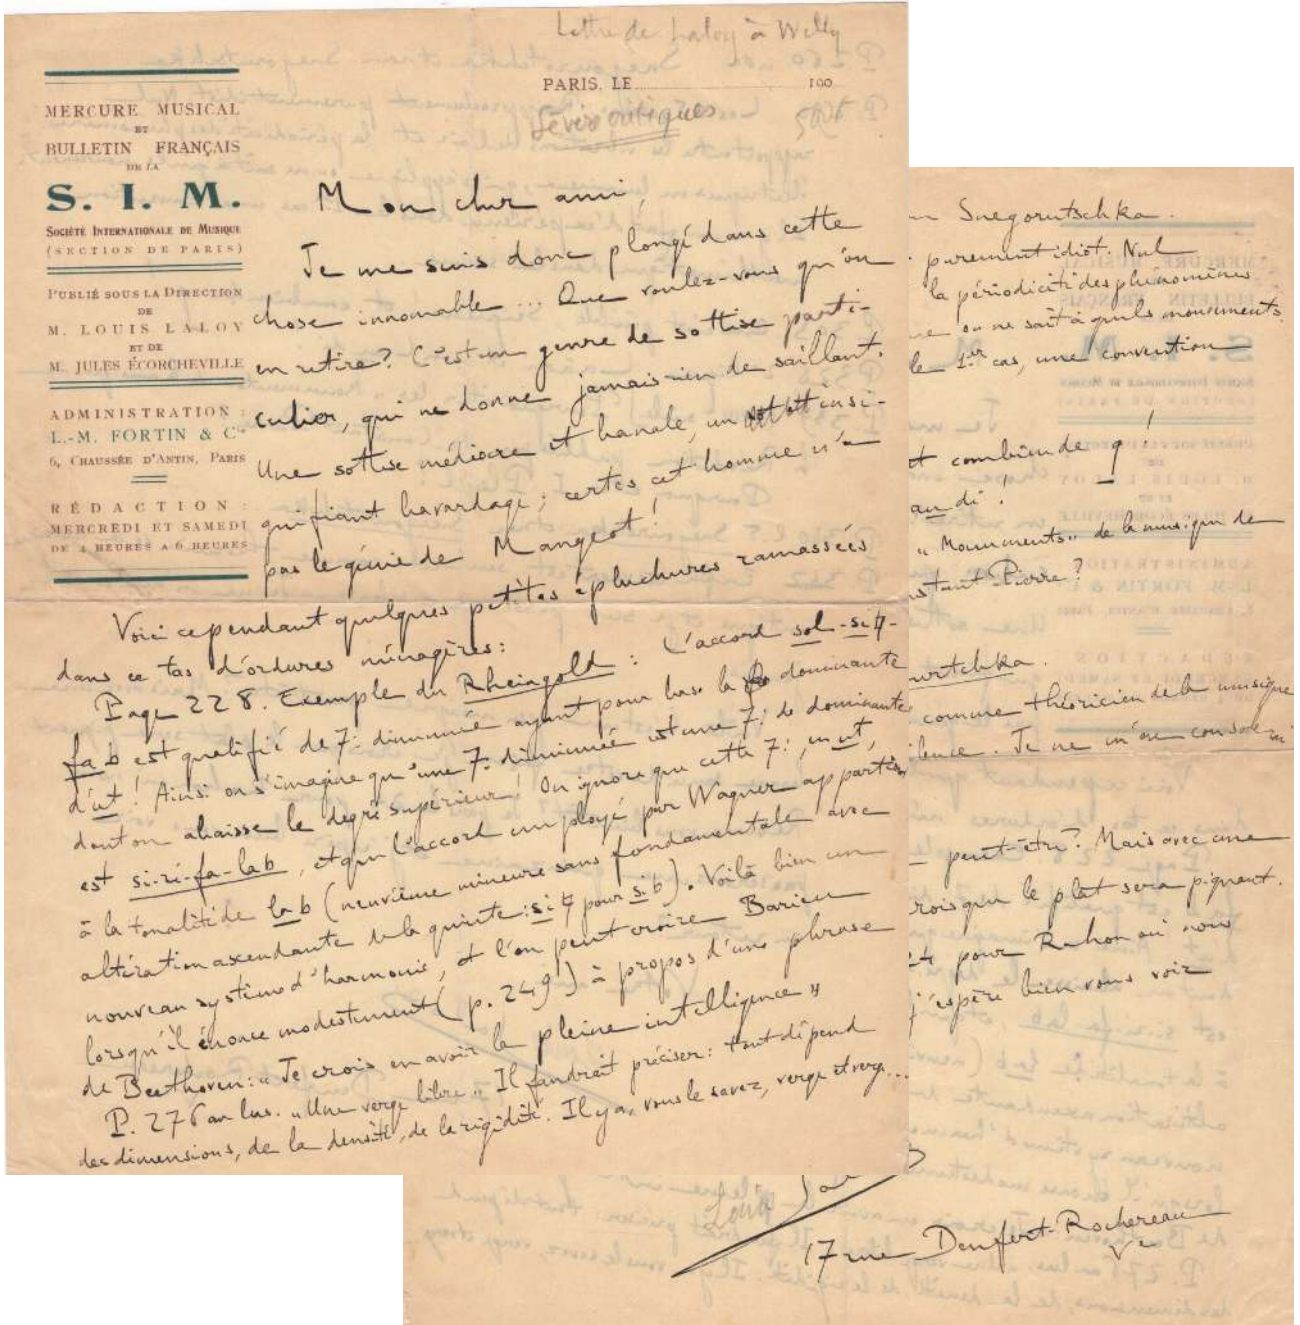 Lettre de Laloy à Willy
PARIS, LE 190
1905
MERCURE MUSICAL
ET
BULLETIN FRANÇAIS
DE LA
S. I. M.
SOCIÉTÉ INTERNATIONALE DE MUSIQUE
(SECTION DE PARIS)
PUBLIÉ SOUS LA DIRECTION
DE
M. LOUIS LALOY
ET DE
M. JULES ÉCORCHEVILLE
ADMINISTRATION :
L.-M. FORTIN & Cie
6, CHAUSSÉE D'ANTIN, PARIS
RÉDACTION :
MERCREDI ET SAMEDI
DE 4 HEURES A 6 HEURES
Mon cher ami,
Je me suis donc plongé dans cette
chose innomable ... Que voulez-vous qu'on
en retire? C'est un genre de sottise parti-
culier, qui ne donne jamais rien de saillant.
Une sottise médiocre et banale, un insi-
gnifiant bavardage ; certes cet homme n'a
pas le génie de Mangeot !
Voici cependant quelques petites épluchures ramassées
dans ce tas d'ordures ménagères :
Page 228. Exemple du Rheingold : L'accord sol-si♮-
fa♭ est qualifié de 7e diminuée ayant pour base la dominante
d'ut ! Ainsi on s'imagine qu'une 7e diminuée est une 7e de dominante
dont on abaisse le degré supérieur ! On ignore que cette 7e, en ut,
est si-ré-fa-la♭, et que l'accord employé par Wagner appartient
à la tonalité de la♭ (neuvième mineure sans fondamentale avec
altération ascendante de la quinte : si♮ pour si♭). Voilà bien un
nouveau système d'harmonie, et l'on peut croire Barieu
lorsqu'il énonce modestement (p. 249) à propos d'une phrase
de Beethoven : « Je crois en avoir la pleine intelligence »
P. 276 au bas. « Une verge libre » Il faudrait préciser : tout dépend
des dimensions, de la densité, de la rigidité. Il y a, vous le savez, verge et verge...
Snegoroutschka.
purement idiot. Nul
la périodicité des phénomènes
ou ne sait à quels mouvements.
le 1er cas, une convention
et combien de g !
au di !
« Monuments » de la musique de
stant Pierre ?
outchka.
comme théoricien de la musique
lence. Je ne m'en console
peut-être ? Mais avec une
rois que le plat sera piquant.
24 pour Rahon où nous
j'espère bien vous voir
Louis
17 rue Denfert-Rochereau
Ve